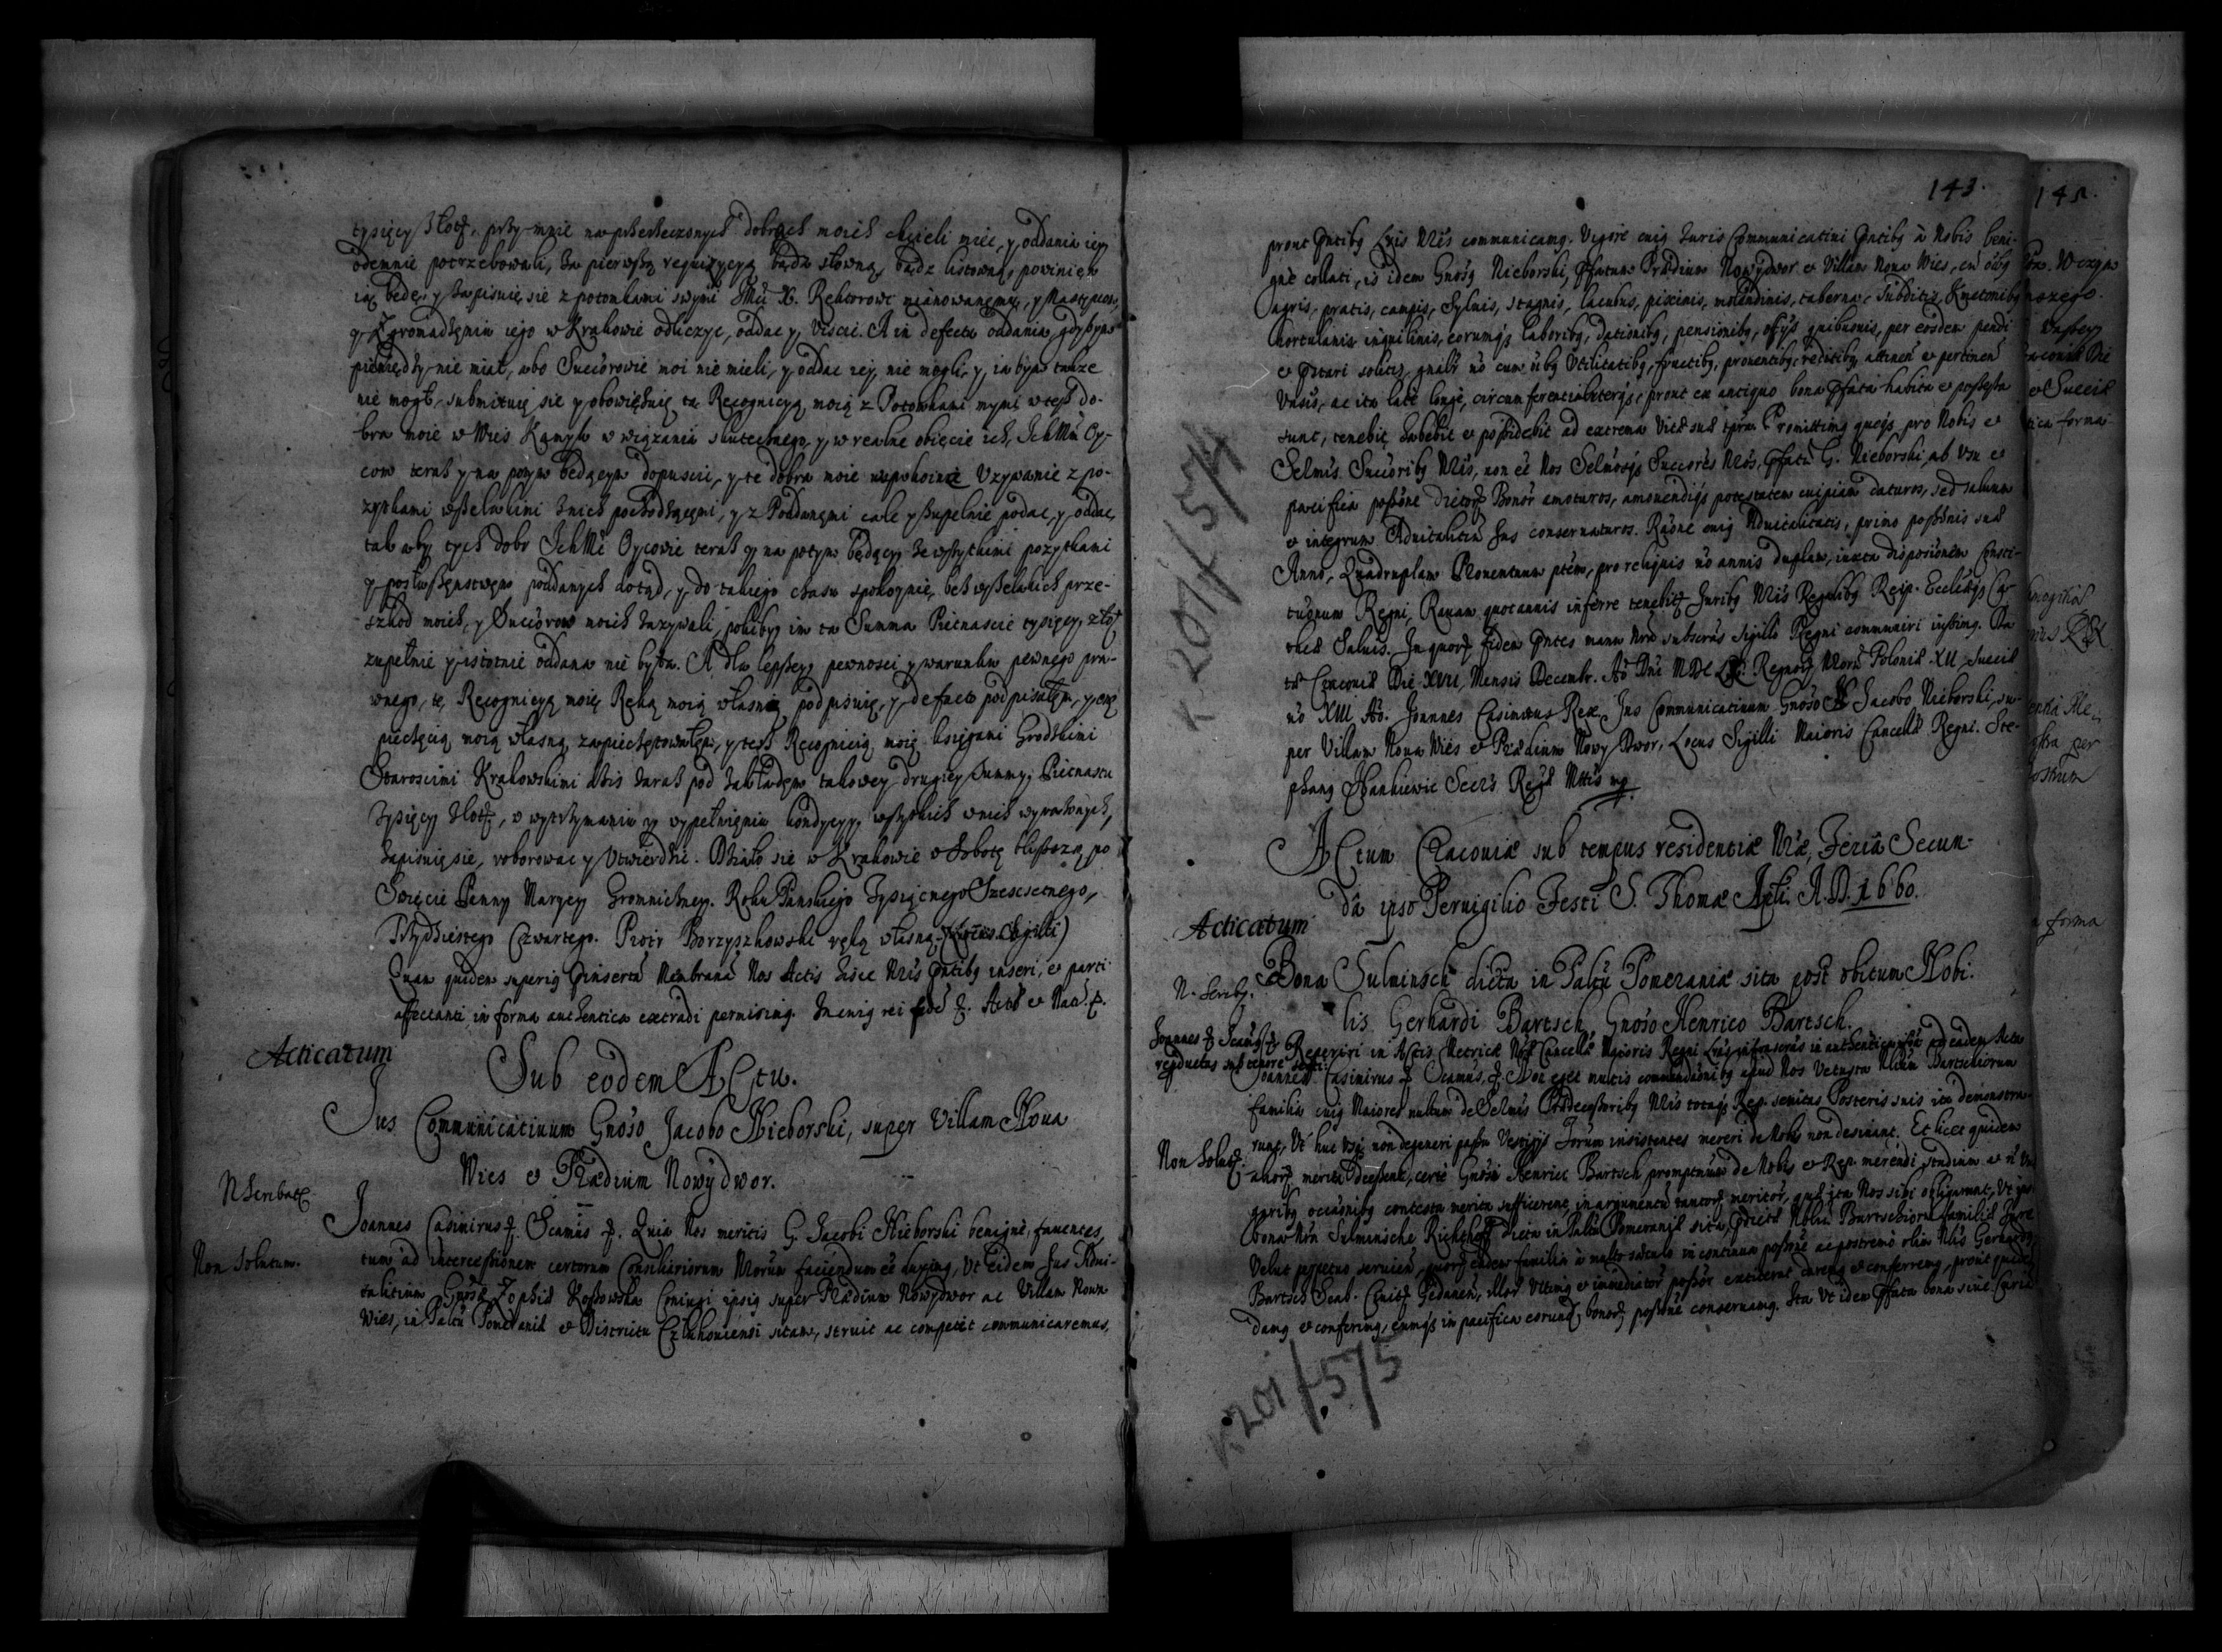 tysięcy złotych, przy mnie na przerzeczonych dobrach moich chcieli mieć, y oddania iey
odemnie potrzebowali, za pierwszą requizycyą bądź słowną, bądz listowną, powinien
ią będę, y zapisuię się z potomkami swymi Jmci X. Rektorowi mianowanemu, y Nastęncom,
y Zgromadzeniu iego w Krakowie odliczyc, oddac y Uiscić. A in defectu oddania, gdybym
pieniędzy nie miał, abo Succesorowie moi nie mieli, y oddac iey nie mogli, y ia bym takze
nie mogł, submituię się y obowięzuię tą Recognicyą moią z Potomkami mymi w tesz do-
bra moie w Wies Kamyk w wiązania skutecznego, y w realne obięcie ich, Ich Mci Oy-
cow teraz y na potym będących dopuscic, y te dobra moie w spokoine Uzywanie z po-
zytkami wszelakimi z nich pochodzącymi, y z Poddanymi cale y zupełnie podac, y oddac,
tak aby tych dobr Ich Mci Oycowie teraz y na potym będący ze wszytkimi pozytkami
y posłuszenstwem poddanych dotąd, y do takiego czasu spokoynie, bez wszelakich prze-
szkod moich, y Succesorow moich zazywali, pokiby im ta Summa Pietnascie tysięcy złotych
zupełnie y istotnie oddana nie była. A dla lepszey pewnosci y warunku pewnego pra-
wnego, tę Recognicyą moię Ręką moią własną podpisuię, y de facto podpisałem, y
pieczęcią moią własną zapieczętowałem, y tesz Recognicią moię księgami Grodzkimi
Starościmi Krakowskimi zaraz pod zakładem takowey drugiey Summy Pietnastu
Tysięcy złotych, o wytrzymaniu y wypełnieniu kondycyy wszytkich w nich wyrażonych,
zapisuię się, roborowac y Utwierdzic. Działo się w Krakowie w Sobotę bliszszą po
Swięcie Panny Maryey Gromniczney. Roku Panskiego Tysiącnego Szescsetnego,
Trzydziestego Czwartego. Piotr Borzyszkowski ręką własną. (Locus Sigilli)
Quam quidem superius insertam Membranam Nos Actis hisce Nris pntibus inseri, et parti
affectanti in forma authentica extradi permisimus. In cuius rei fidem p. Actum et Datum p.
Acticatum
Sub eodem Actu.
Jus Communicatiuum Gnoso Jacobo Nieborski, super Villam Noua
Wies et Prædium Nowydwor.
N Scribatur
Joannes Casimirus p. Scamus p. Quia Nos meritis G. Jacobi Nieborski benignè fauentes,
Non Solutum.
tum ad intercessionem certorum Consiliariorum Nrorum faciendum esse duximus, Ut Eidem Jus Adui-
talitium Gnosæ Zophiæ Kossowska Coniugi ipsius super Prædium Nowydwor ac Villam Nowa
Wies, in Paltu Pomeraniæ et Districtu Czluhouiensi sitam, seruit ac competit communicaremus,
143.
142.
prout pntibus Lris Nris communicamus. Vigore cuius Iuris Communicatiui pntibus à Nobis beni-
gnè collati, is idem Gnosus Nieborski, pfatum Prædium Nowydwor et Villam Noua Wies, cum oibus
agris, pratis, campis, syluis, stagnis, lacubus, piscinis, molendinis, taberna, Subditis, Kmetonibus
hortulanis inquilinis, eorumque laboribus, dationibus, pensionibus, osys quibusuis, per eosdem pendi
et pstari solitis, gnalr uero cum oibus Utilitatibus, fructibus, prouentibus, reditibus, attinen et pertinen
Vniuersis, ac ita latè longè, circumferentialiterque, prout ex antiquo bona pfata habita et possessa
sunt, tenebit, habebit et possidebit ad extrema Vitæ suæ tpra. Promittimus quoque pro Nobis et
Selmis Succoribus Nris, non esse Nos Selmosque Succores Nros, pfatum G. Nieborski, ab Usu et
pacifica possone dictorum Bonorum amoturos, amouendique potestatem cuipiam daturos, sed saluum
et integrum Aduitalitium Jus conseruaturos. Raone cuius Aduitalitatis, primo possonis suæ
Anno, Quadruplam Prouentuum ptem, pro reliquis uero annis duplam, iuxta disposionem Consti-
tuonum Regni, Rauam quotannis inferre tenebitur. Juribus Nris Regalibus Reip. Ecclesiæque Ca-
thcæ Saluis. In quorum fidem pntes manu Nra subscras sigillo Regni communiri iussimus. Da-
tæ Cracouiæ Die XVII Mensis Decembr. Ao Dni MDCLX. Regnorum Nrorum Poloniæ XII, Sueciæ
uero XIII Ao. Joannes Casimirus Rex. Jus Communicatiuum Gnoso Jacobo Nieborski, su-
per Villam Noua Wies et Prædium Nowy Dwor. Locus Sigilli Maioris Cancellæ Regni. Ste-
phanus Hankiewic Secrs Regiæ Mttis mp.
K 201/574
Actum Cracouiæ sub tempus residentiæ Nræ, Feriâ Secun-
dâ ipso Peruigilio Festi S. Thomæ Apli. A. D. 1660.
Acticatum
Bona Sulminsch dicta in Paltu Pomeraniæ sita post obitum Nobi-
N. Scribr.
lis Gerhardi Bartsch, Gnoso Henrico Bartsch.
Joannes p. Scamus p. Reperiri in Actis Metricæ Nræ Cancellæ Maioris Regni
Joannes Casimirus p. Scamus, p. Non eget multis commendaonibus apud Nos Vetusta Nlium Bartschiorum
familia cuius Maiores multum de Selmis Prædecessoribus Nris totaque Rep. meritas Posteris suis ita demonstra-
runt, Ut huc usque non degeneri passu Vestigiis Illorum insistentes mereri de Nobis non desinant. Et licet quidem
Non Solutum.
aliorum merita deessent, certe Gnosi Henrici Bartsch promptum de Nobis et Rep. merendi studium
oibus occasionibus contesta merita sufficerent, in argumentum tantorum meritorum, quæ ita Nos sibi obligarunt, Ut
bona Nra Sulminsche Richthoff dicta in Paltu Pomeraniæ sita, pdictæ Nblium Bartschiorum familiæ Jure
Velut perpetuo seruien, quorum eadem familia à multo sæculo in continua possone ac postremò olim Nlis Gerhardus
Bartsch Scab. Ciuitatis Gedanen, illorum Ultimus et immediatus possor extiterat daremus et conferremus, prout quidem
damus et conferimus, eumque in pacifica eorundem bonorum possone conseruamus. Ita Ut idem pfata bona siue Curia
K 201/575